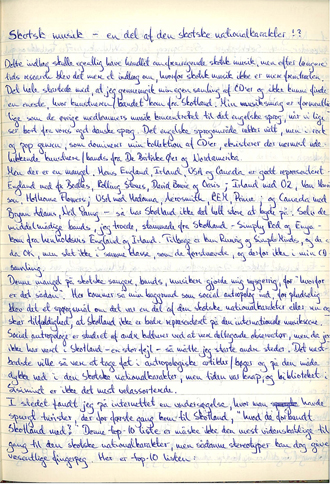 Skotsk musik – en del af den skotske nationalkarakter !?
Dette indlæg skulle egentlig have handlet om skotsk musik, men efter længere
tids research blev det mere et indlæg om, hvorfor skotsk musik ikke er mere fremtrædende.
Det hele startede med, at jeg gennemgik min egen samling af CD'er og ikke kunne finde
en eneste, hvor kunstneren/bandet kom fra Skotland. Min musiksmag er formodentlig
lige som de øvrige medlemmers musik koncentreret til det engelske sprog, når vi lige
ser bort fra vores eget danske sprog. Det engelske sprogområde rækker vidt, men i rock
og pop genren, som dominerer min kollektion af CD'er, eksisterer der nærmest ude-
lukkende kunstnere/bands fra De Britiske Øer og Nordamerika.
Men der er en mangel. Mens England, Irland, USA og Canada er godt repræsenteret –
England med fx Beatles, Rolling Stones, David Bowie og Oasis; Irland med U2, Van
og Hothouse Flowers; USA med Madonna, Aerosmith, R.E.M., Prince; og Canada med
Bryan Adams, – så har Skotland ikke det helt store at byde på. Selv de
middelmådige bands, jeg troede, stammede fra Skotland – Simply Red og Enya –
kom fra henholdsvis England og Irland. Tilbage er kun Runrig og Simple Minds, og de er
da OK, men slet ikke i samme klasse, som de førstnævnte, og derfor ikke i min CD
samling.
Denne mangel på skotske sangere, bands, musikere gjorde mig nysgerrig, for "hvorfor
er det sådan". Her kommer så min baggrund som social antropolog ind, for pludselig
blev det et spørgsmål om det var en del af den skotske nationalkarakter eller en
sker tilfældighed, at Skotland ikke er bedre repræsenteret på den internationale musikscene.
Social antropologi er studiet af andre kulturer ved at være deltagende observatør, men da jeg
ikke har været i Skotland – en stor fejl – så måtte jeg starte andre steder. Det ned-
bedste ville så være at tage fat i antropologiske artikler/bøger og på den måde
dykke ned i den skotske nationalkarakter, men tiden var knap, og biblioteket i
er ikke det mest velassorterede.
I stedet fandt jeg på internettet en undersøgelse, hvor man havde
spurgt turister, der for første gang kom til Skotland, "hvad de forbandt
Skotland med". Denne top-10 liste er måske ikke den mest videnskabelige til-
gang til den skotske nationalkarakter, men sådanne stereotyper kan dog give
væsentlige fingerpeg. Her er top-10 listen: